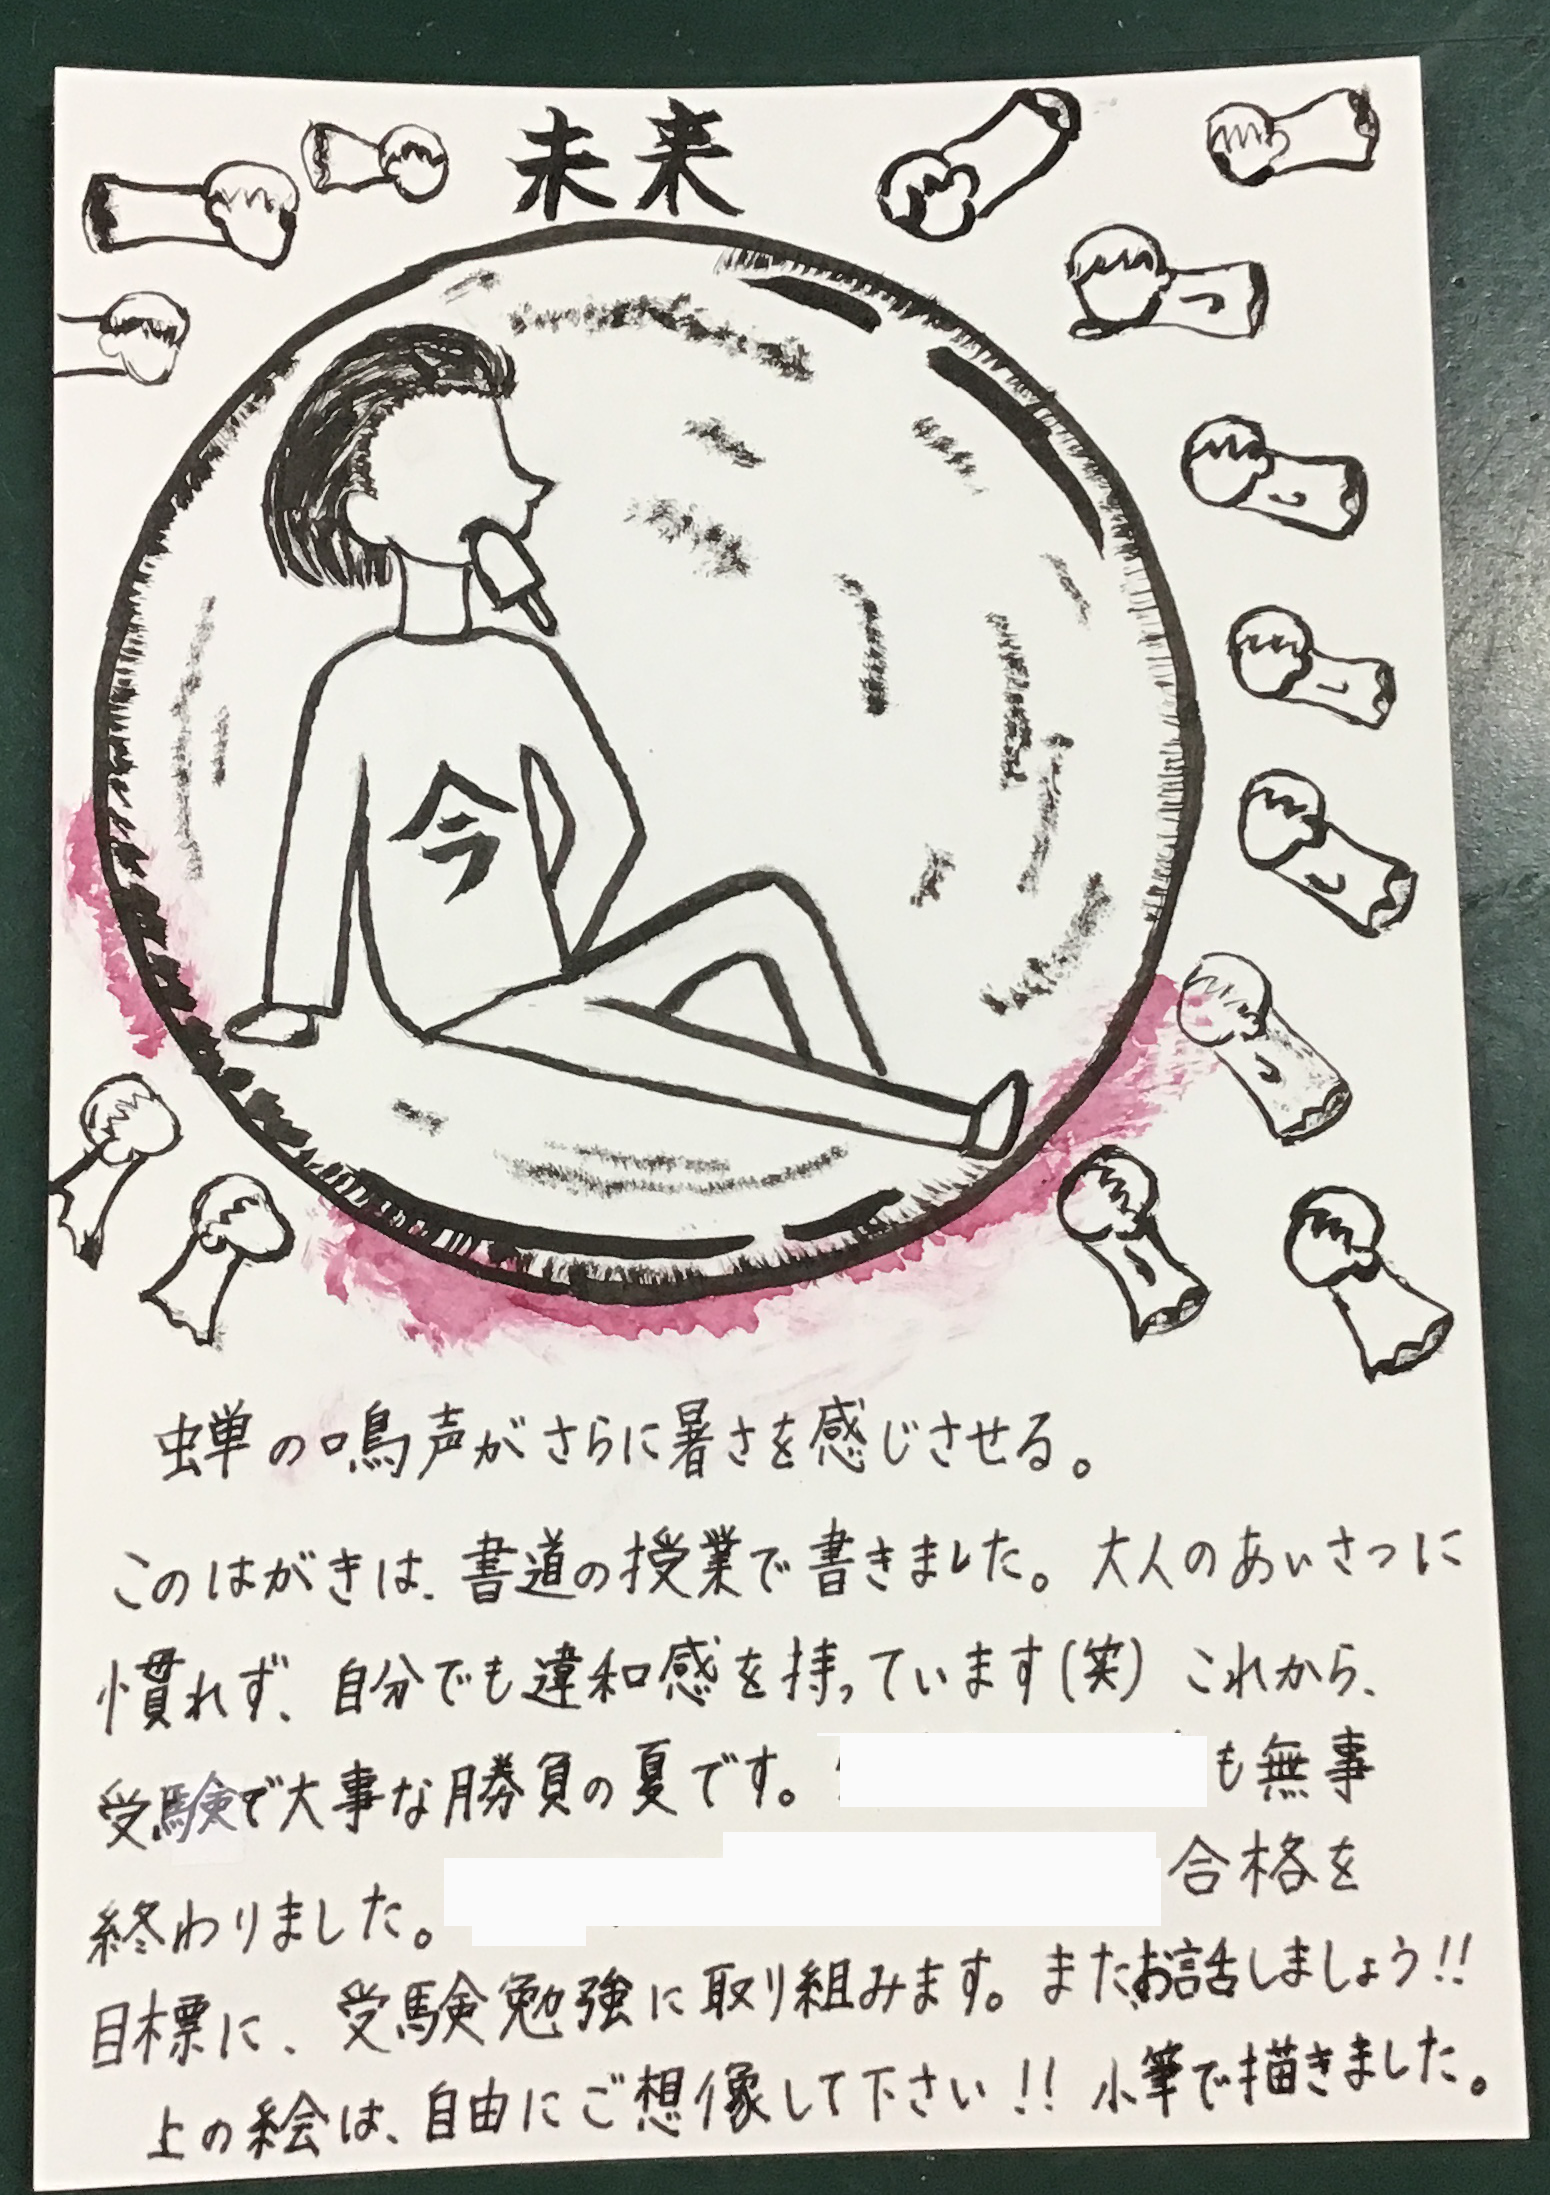 未来
今
蝉の鳴声がさらに暑さを感じさせる。
このはがきは、書道の授業で書きました。大人のあいさつに
慣れず、自分でも違和感を持っています(笑) これから、
受験で大事な勝負の夏です。も無事
終わりました。合格を
目標に、受験勉強に取り組みます。また、お話しましょう!!
上の絵は、自由にご想像して下さい!! 小筆で描きました。